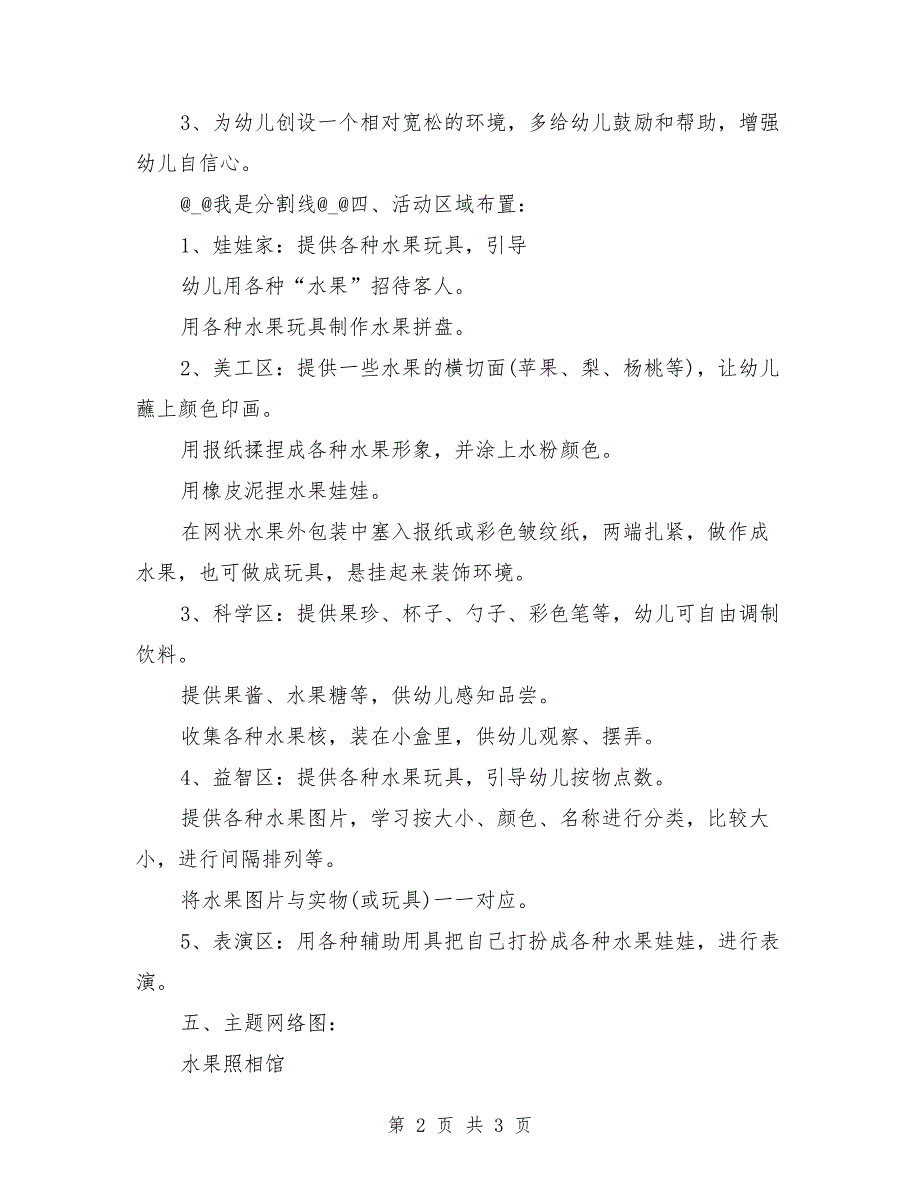 3、为幼儿创设一个相对宽松的环境，多给幼儿鼓励和帮助，增强
幼儿自信心。
@_@我是分割线@_@四、活动区域布置：
1、娃娃家：提供各种水果玩具，引导
幼儿用各种“水果”招待客人。
用各种水果玩具制作水果拼盘。
2、美工区：提供一些水果的横切面(苹果、梨、杨桃等)，让幼儿
蘸上颜色印画。
用报纸揉捏成各种水果形象，并涂上水粉颜色。
用橡皮泥捏水果娃娃。
在网状水果外包装中塞入报纸或彩色皱纹纸，两端扎紧，做作成
水果，也可做成玩具，悬挂起来装饰环境。
3、科学区：提供果珍、杯子、勺子、彩色笔等，幼儿可自由调制
饮料。
提供果酱、水果糖等，供幼儿感知品尝。
收集各种水果核，装在小盒里，供幼儿观察、摆弄。
4、益智区：提供各种水果玩具，引导幼儿按物点数。
提供各种水果图片，学习按大小、颜色、名称进行分类，比较大
小，进行间隔排列等。
将水果图片与实物(或玩具)一一对应。
5、表演区：用各种辅助用具把自己打扮成各种水果娃娃，进行表
演。
五、主题网络图：
水果照相馆
第 2 页 共 3 页